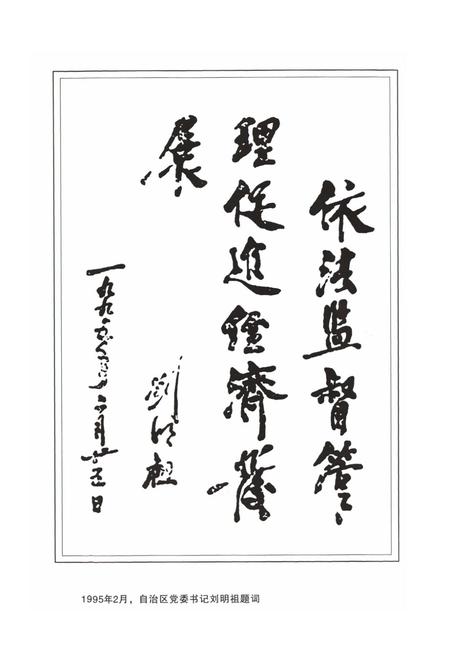 依法监督管
理促进经济发
展
刘明祖
一九九五年二月廿五日
1995年2月，自治区党委书记刘明祖题词